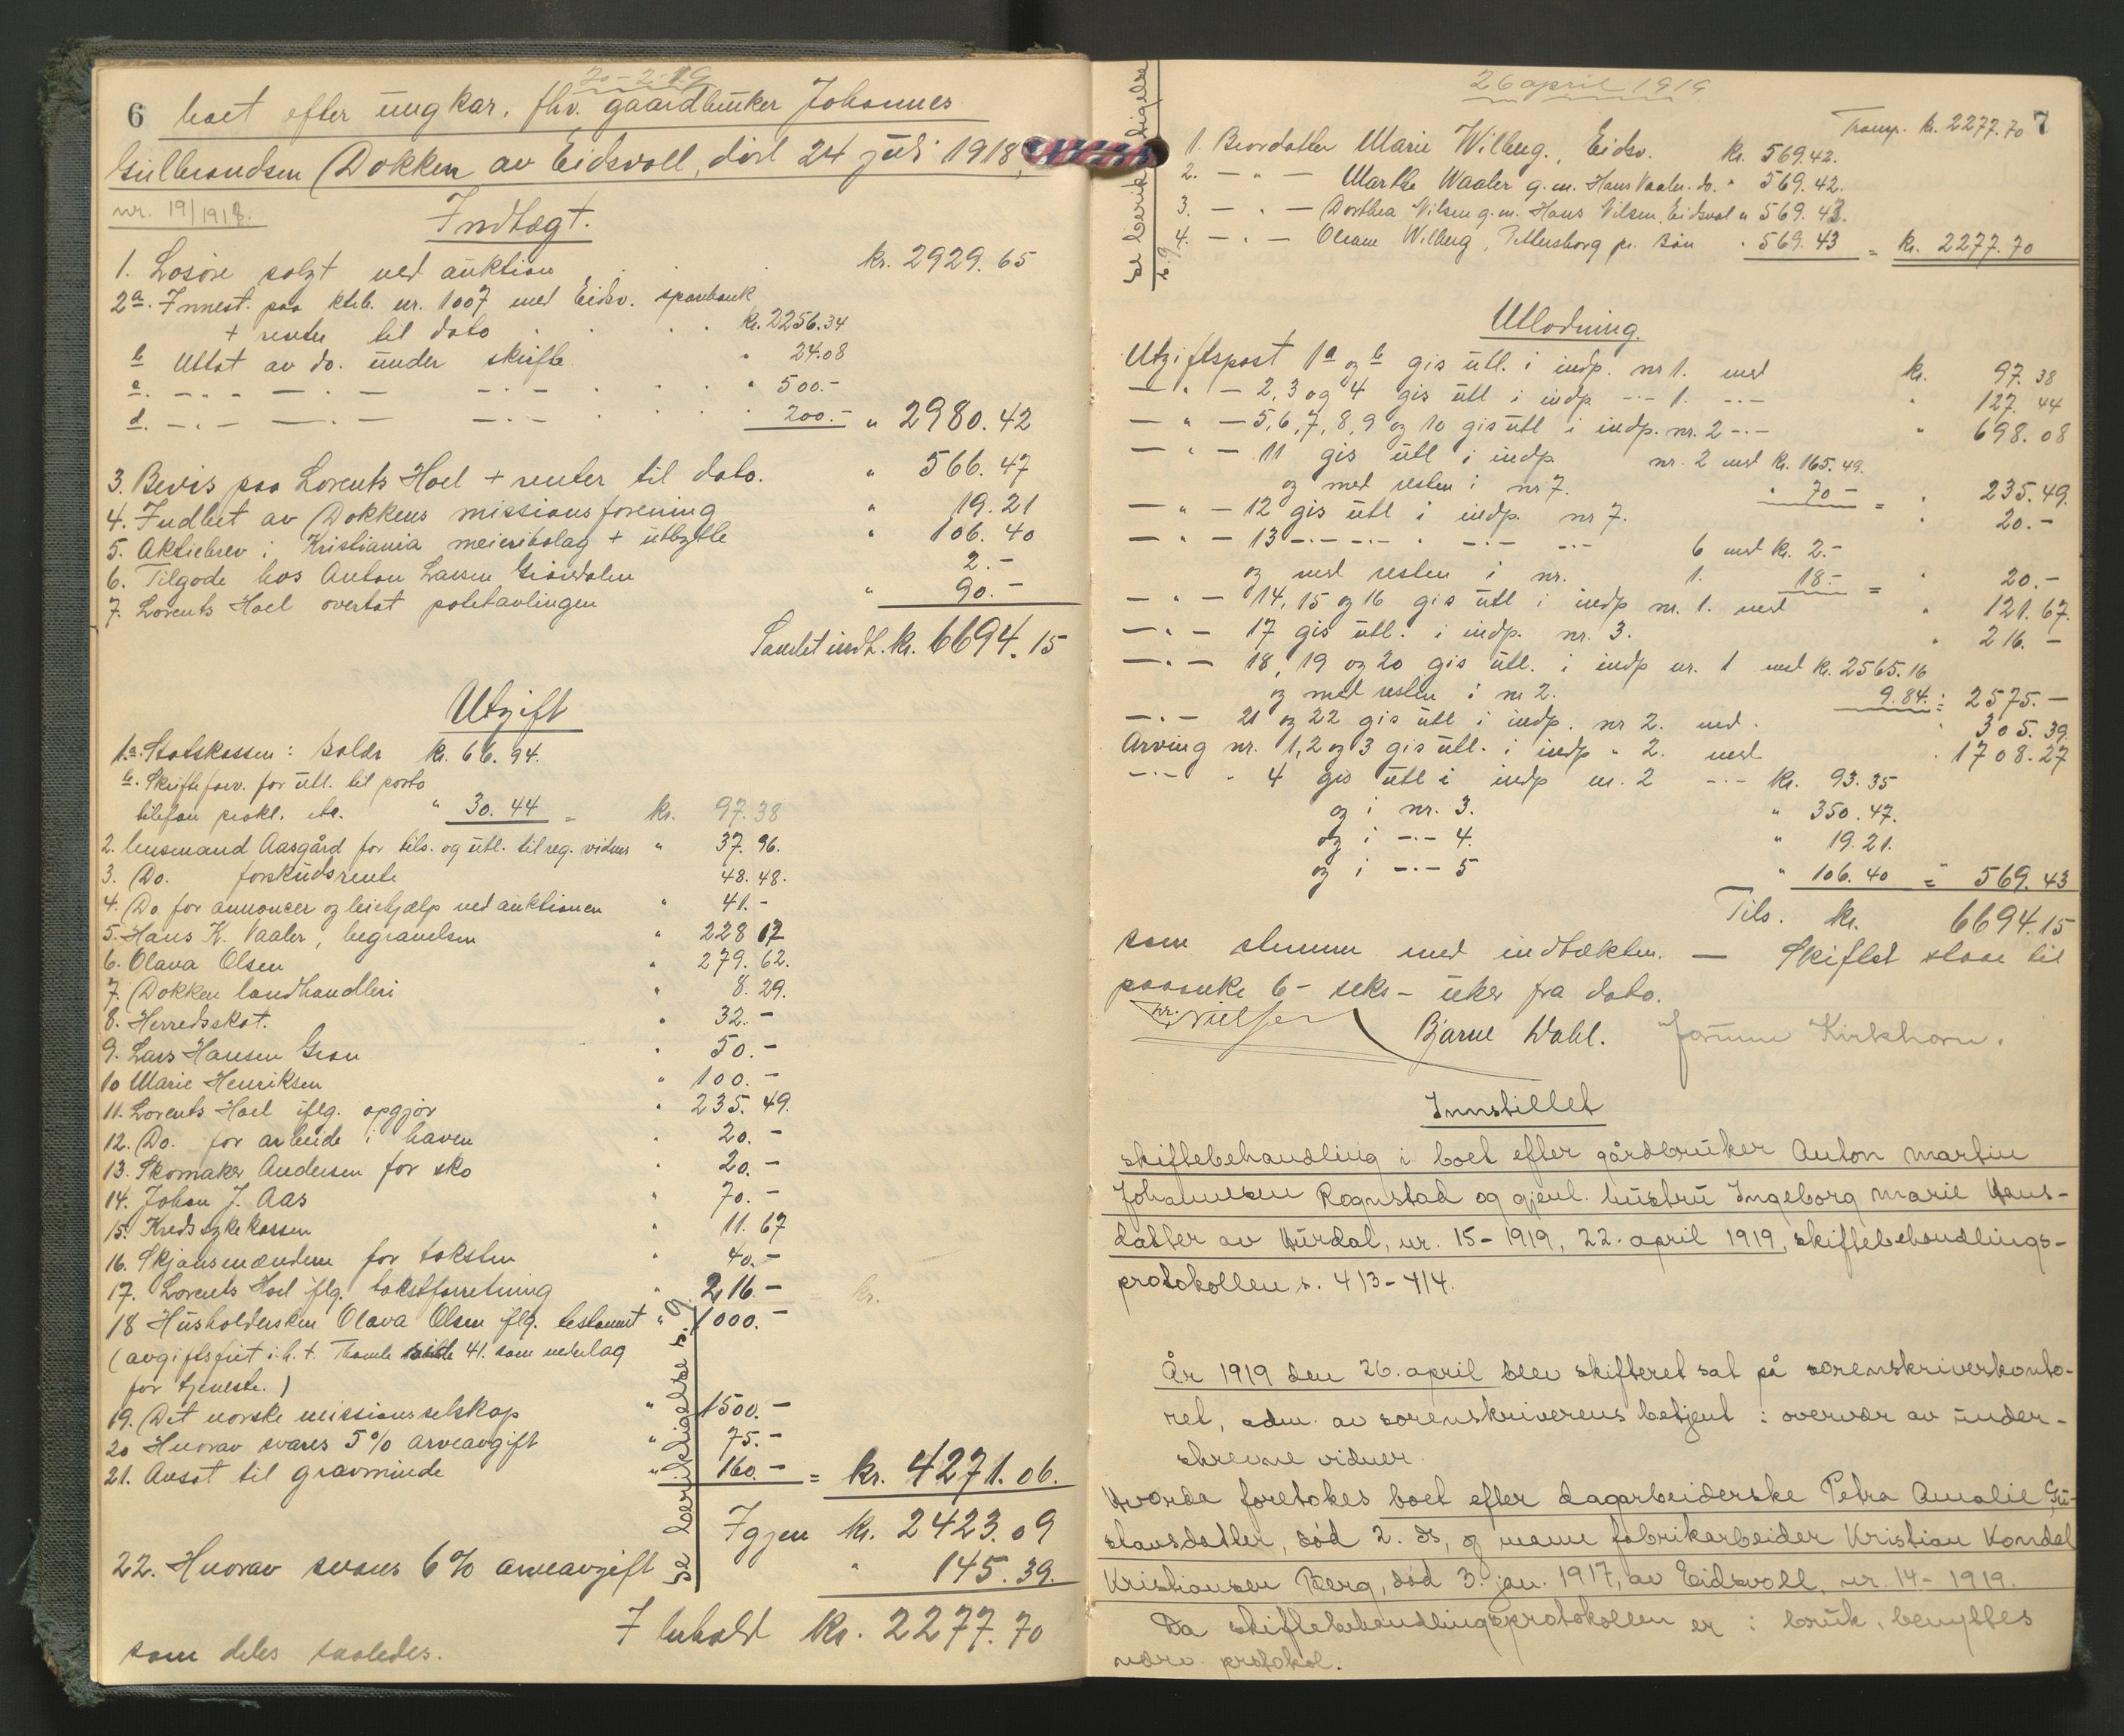 20-2-19
6 boet efter ungkar, fhv. gaardbruker Johannes
Gulbrandsen Dokken av Eidsvoll, död 24 juli 1918,
nr. 19/1918.
Indtægt.
1. Løsøre solgt ved auktion . . . kr. 2929.65
2a. Innest. paa ktrb. nr. 1007 med Eidsv. sparebank
+ renter til dato . . . kr. 2256.34
b Uttat av do. under skifte " 24.08
c. — " — " — " 500.-
d. — " — " — 200.- " 2980.42
3. Bevis paa Lorents Hoel + renter til dato. " 566.47
4. Indbet av Dokkens missionsforening " 19.21
5. Aktiebrev i Kristiania meieribolag + utbytte " 106.40
6. Tilgode hos Anton Larsen 2.-
7. Lorents Hoel overtat potetavlingen " 90.-
Samlet indt. kr. 6694.15
Utgift
1.a. Statskassen: Saldr kr. 66.94.
b. Skifteforv. for utl. til porto
telefon prokl. etc. " 30.44 = kr. 97.38
2. lensmand Aasgård for tils. og utl. til reg. vidner " 37.96.
3. Do. forskudsrente 48.48.
4. Do for annoncer og leiehjælp ved auktionen " 41.-
5. Hans K. Vaaler, begravelsen " 228 67
6. Olava Olsen " 279.62.
7. Dokken landhandleri " 8.29.
8. Herredsskat. " 32.-
9. Lars Hansen Gran " 50.-
10 Marie Henriksen " 100.-
11. Lorents Hoel iflg. opgjør " 235.49.
12. Do. for arbeide i haven " 20.-
13. Skomaker Andersen for sko " 20.-
14. Johan J. Aas " 70.-
15. Kredssykekassen " 11.67
16. Skjønsmændene for taksten " 40.-
17. Lorents Hoel iflg. takstforretning " 216.- = kr.
18 Husholdersken Olava Olsen iflg. testament " 1000.-
(avgiftsfrit i.h.t. Thomle side 41. som vederlag
for tjeneste.)
19. Det norske missionsselskap " 1500.-
20 Hvorav svares 5% arveavgift " 75.-
21. Avsat til gravminde " 160.- = kr. 4271.06.
Igjen kr. 2423.09
22. Hvorav svares 6% arveavgift " 145.39.
I behold kr. 2277.70
som deles saaledes.
Se beriktigelse s. 9
26 april 1919
7
Transp. kr. 2277.70
1. Brordatter Marie Wilberg, Eidsv. kr. 569.42.
2. — " — Marthe Waaler g.m. Hans Vaaler. do. " 569.42.
3. — " — Dorthea Nilsen g.m. Hans Nilsen, Eidsvol " 569.43.
4. — " — Oleane Wilberg, Pettersborg pr. Bøn " 569.43 = kr. 2277.70
Se beriktigelse
s. 9
Utlodning.
Utgiftspost 1a og b gis utl. i indp. nr 1. med kr. 97.38
— " — 2, 3 og 4 gis utl i indp — " — 1. — " — " 127.44
— " — 5, 6, 7, 8, 9 og 10 gis utl i indp. nr. 2 — " — " 698.08
— " — 11 gis utl i indp nr. 2 med kr. 165.49.
og med resten i nr 7. " 70 — = " 235.49.
— " — 12 gis utl i indp. nr 7. " 20.-
— " — 13 — " — " — " — 6 med kr. 2.-
og med resten i nr. 1. 18.- = " 20.-
— " — 14, 15 og 16 gis utl i indp nr. 1. med " 121.67.
— " — 17 gis utl. i indp. nr. 3. " 216.-
— " — 18, 19 og 20 gis utl. i indp nr. 1 med kr. 2565.16
og med resten i nr 2. 9.84. = 2575.-
— " — 21 og 22 gis utl i indp. nr 2. med " 305.39.
Arving nr. 1, 2 og 3 gis utl. i indp " 2. med " 1708.27
— " — " 4 gis utl i indp nr. 2 — " — kr. 93.35
og i nr. 3. " 350.47.
og i — " — 4. " 19.21.
og i — " — 5 " 106.40 = " 569.43
Tils. kr. 6694.15
som stemmer med indtækten. — Skiftet staar til
paaanke 6 - seks - uker fra dato.
Nielsen Bjarne Dahl. Kirkhorn.
Innstillet
skiftebehandling i boet efter gårdbruker Anton Martin
Johannesen Rognstad og gjenl. hustru Ingeborg Marie Hans-
datter av Hurdal, nr. 15-1919, 22. april 1919, skiftebehandlings-
protokollen s. 413-414.
År 1919 den 26. april blev skifteret sat på sorenskriverkonto-
ret, adm. av sorenskriverens betjent i overvær av under-
skrevne vidner.
Hvorda foretokes boet efter dagarbeiderske Petra Amalie Gu-
stavsdatter, død 2. ds, og mann fabrikarbeider Kristian Kondal
Kristiansen Berg, død 3. jan. 1917, av Eidsvoll, nr. 14-1919.
Da skiftebehandlingsprotokollen er i bruk, benyttes
nærv. protokol.